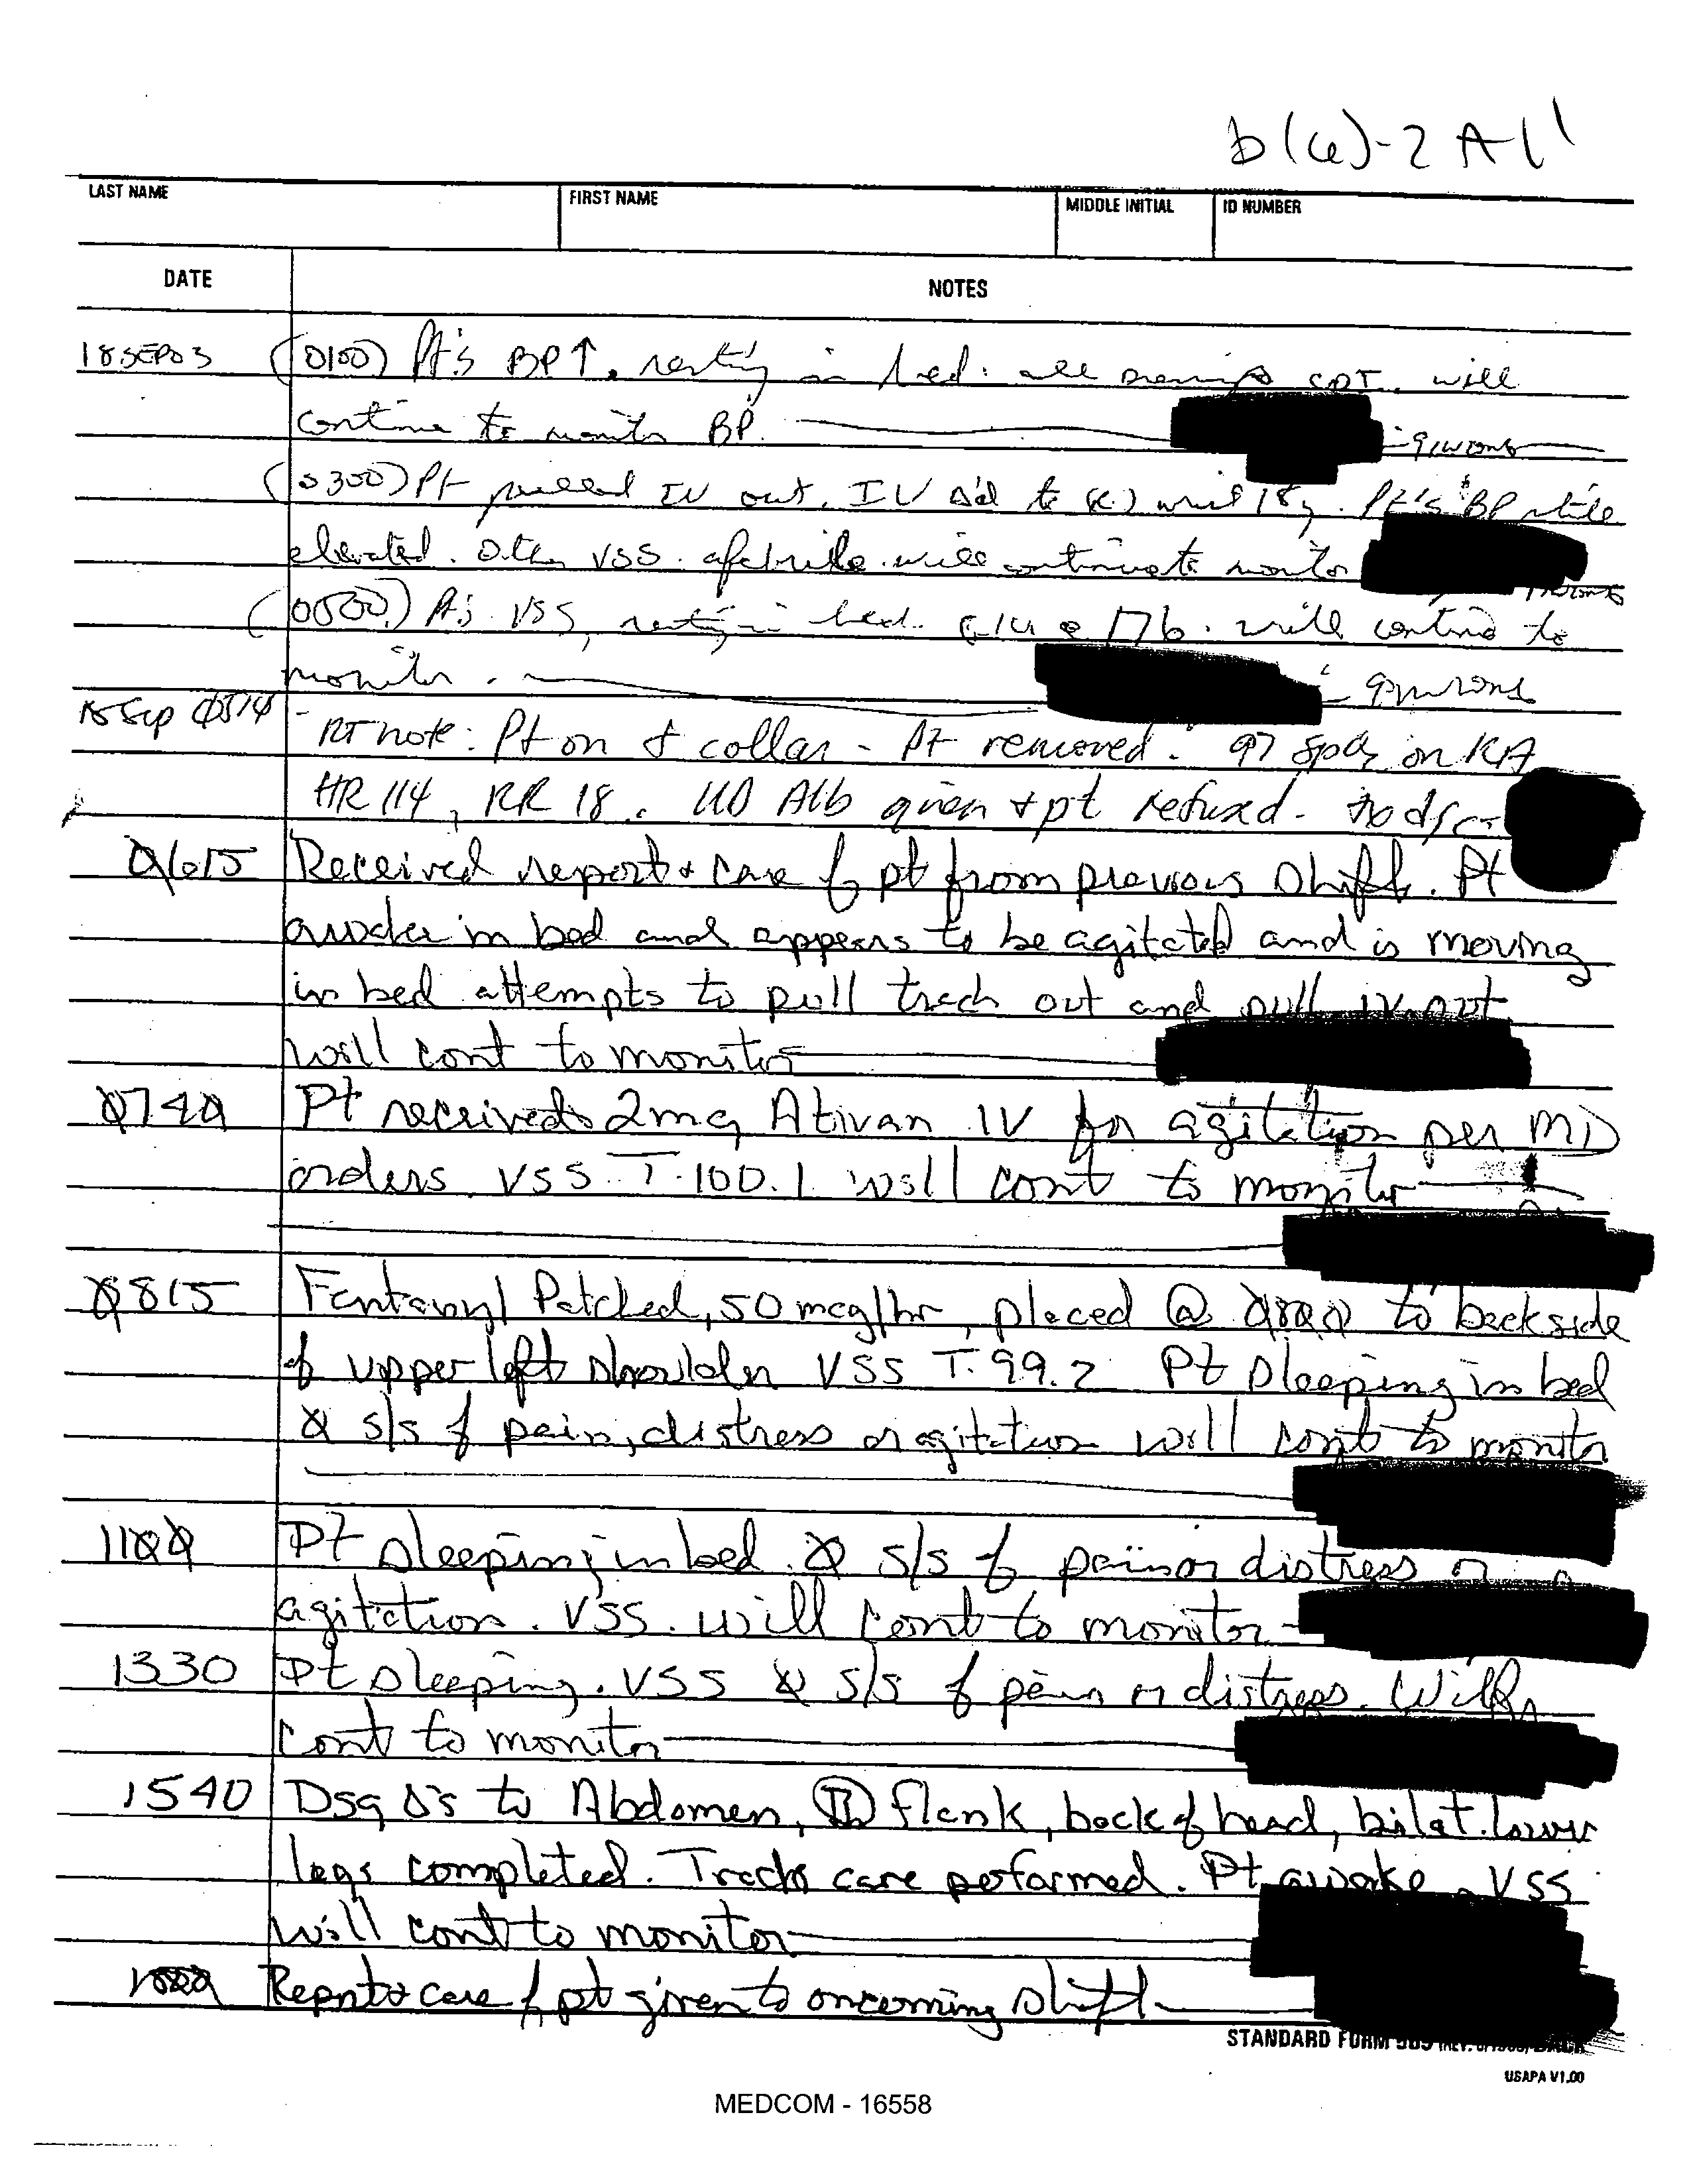 b(6)-2 All
LAST NAME FIRST NAME MIDDLE INITIAL ID NUMBER
DATE NOTES
18SEP03 (0100) Pt's BP↑. resting in bed. all CDI. will
continue to monitor BP.
(0300) Pt pulled IV out. IV Δ'd to (R) wrist 18g. Pt's BP still
elevated. Other VSS. afebrile. will continue to monitor
(0500) Pt's VSS, resting in bed. @ 176. will continue to
monitor.
18 Sep 0514 - RT note: Pt on collar - Pt removed. 97 SpO2 on RA
HR 114, RR 18. UD Alb given + pt refused.
0615 Received report & care of pt from previous shift. Pt
awake in bed and appears to be agitated and is moving
in bed attempts to pull trach out and pull IV out
will cont to monitor
0740 Pt received 2mg Ativan IV for agitation per MD
orders. VSS T. 100.1 will cont to monitor
0815 Fentanyl Patched, 50 mcg/hr, placed @ 0800 to backside
of upper left shoulder VSS T. 99.2 Pt sleeping in bed
Ø s/s of pain, distress or agitation will cont to monitor
1100 Pt sleeping in bed. Ø s/s of pain or distress or
agitation. VSS. will cont to monitor
1330 Pt sleeping. VSS Ø s/s of pain or distress. Will
cont to monitor
1540 Dsg Δ's to Abdomen, flank, back of head, bilat. lower
legs completed. Trach care performed. Pt awake. VSS
will cont to monitor
Report & care of pt given to oncoming shift
STANDARD FORM BACK
USAPA V1.00
MEDCOM - 16558